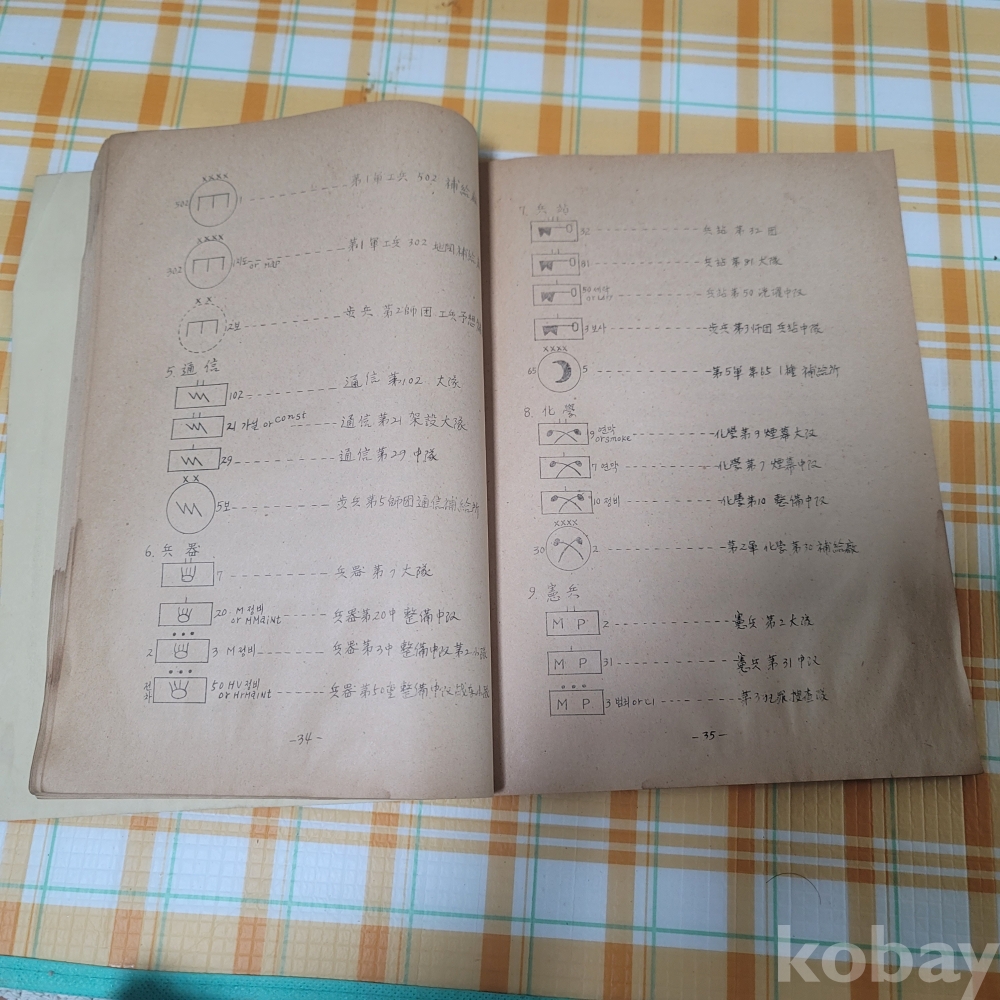 XXXX
502 1 第1軍工兵 502 補給廠
XXXX
302 지도 or MAP 第1軍工兵 302 地図補給廠
XX
12보 歩兵 第2師団 工兵予想
5. 通信
102 通信 第102 大隊
21 가설 or const 通信 第21 架設大隊
29 通信 第29 中隊
XX
5보 歩兵第5師団通信補給所
6. 兵器
7 兵器 第7 大隊
20 M 정비 or MMaint 兵器第20中 整備中隊
2 3 M 정비 兵器第3中 整備中隊第2小隊
전차 50 HV 정비 or HrMaint 兵器第50重整備中隊
-34-
7. 兵站
32 兵站 第32団
81 兵站 第81大隊
50 세탁 兵站 第50 洗濯中隊
3보사 歩兵第3師団 兵站中隊
XXXX
65 5 第5軍 第65 1種 補給所
8. 化學
9 연막 or smoke 化學第9煙幕大隊
7 연막 化學第7 煙幕中隊
10 정비 化學第10 整備中隊
XXXX
30 2 第2軍 化學 第30 補給廠
9. 憲兵
M P 2 憲兵 第2大隊
M P 31 憲兵 第31中隊
M P 3 범죄 or CI 第3犯罪搜査隊
-35-
kobay